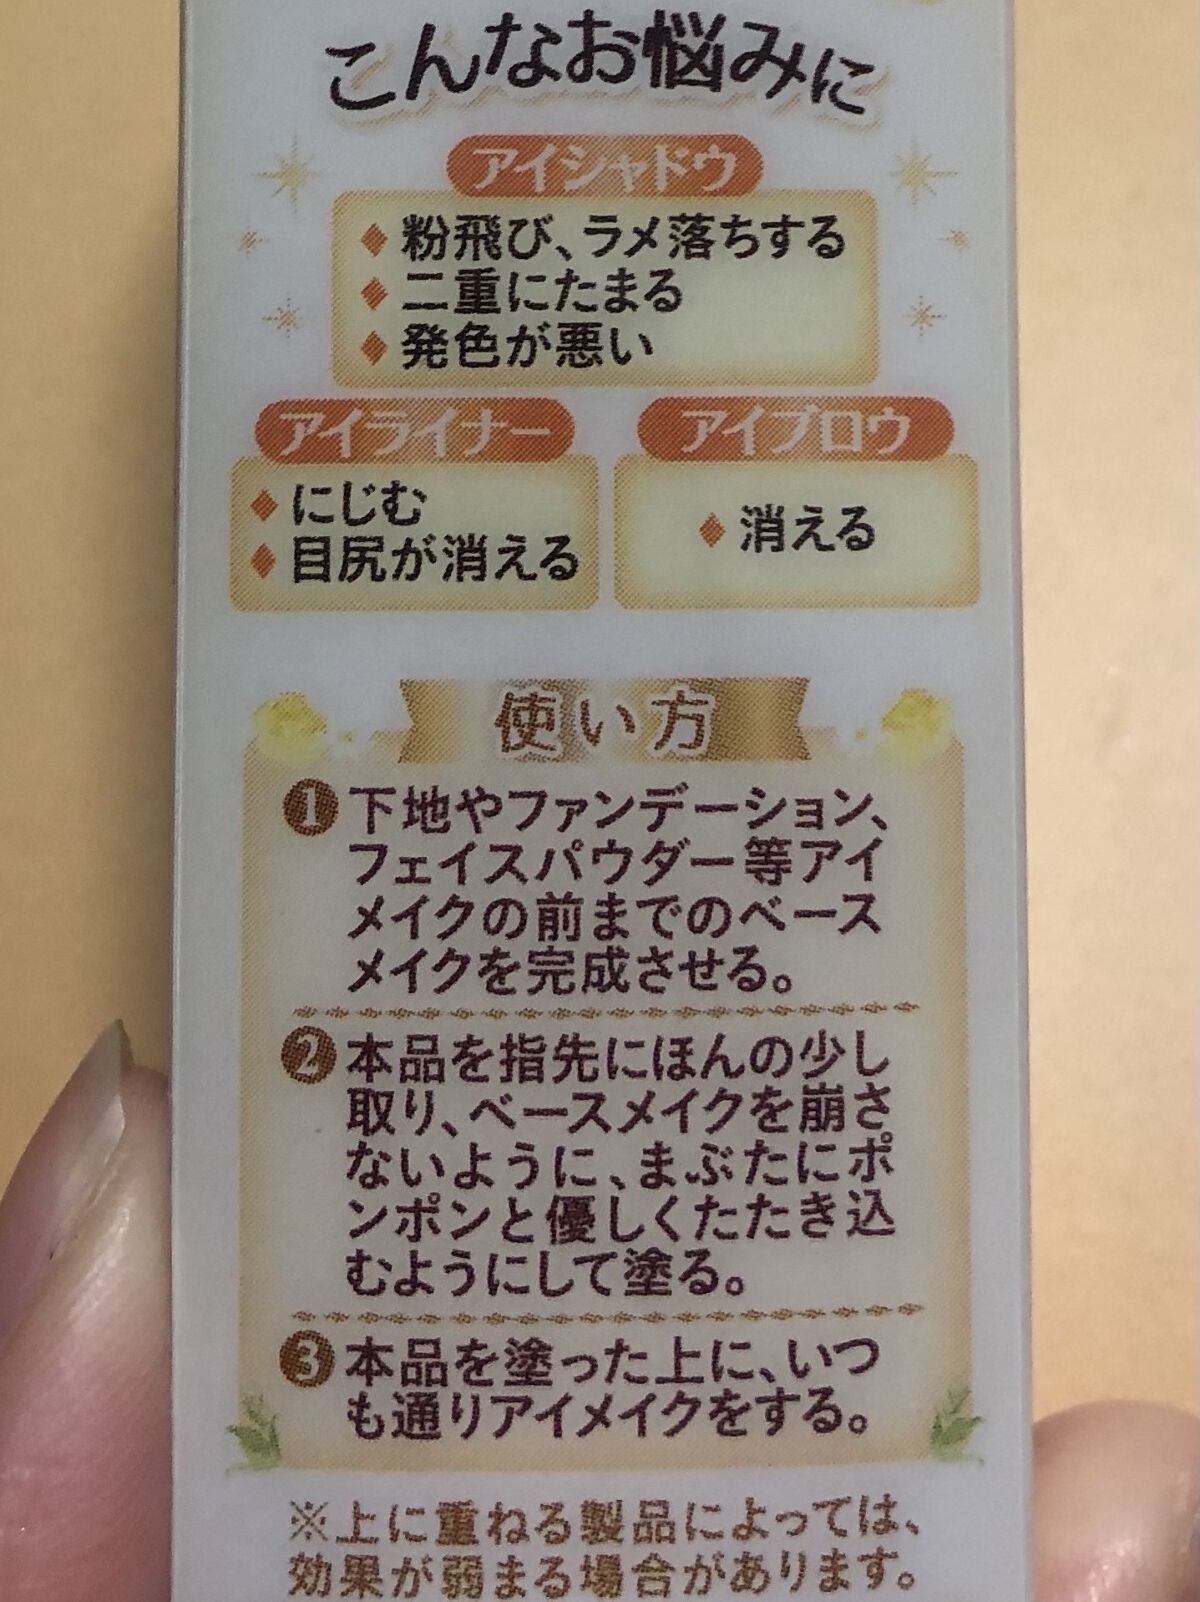 こんなお悩みに
アイシャドウ
◆粉飛び、ラメ落ちする
◆二重にたまる
◆発色が悪い
アイライナー
◆にじむ
◆目尻が消える
アイブロウ
◆消える
使い方
❶下地やファンデーション、
フェイスパウダー等アイ
メイクの前までのベース
メイクを完成させる。
❷本品を指先にほんの少し
取り、ベースメイクを崩さ
ないように、まぶたにポ
ンポンと優しくたたき込
むようにして塗る。
❸本品を塗った上に、いつ
も通りアイメイクをする。
※上に重ねる製品によっては、
効果が弱まる場合があります。